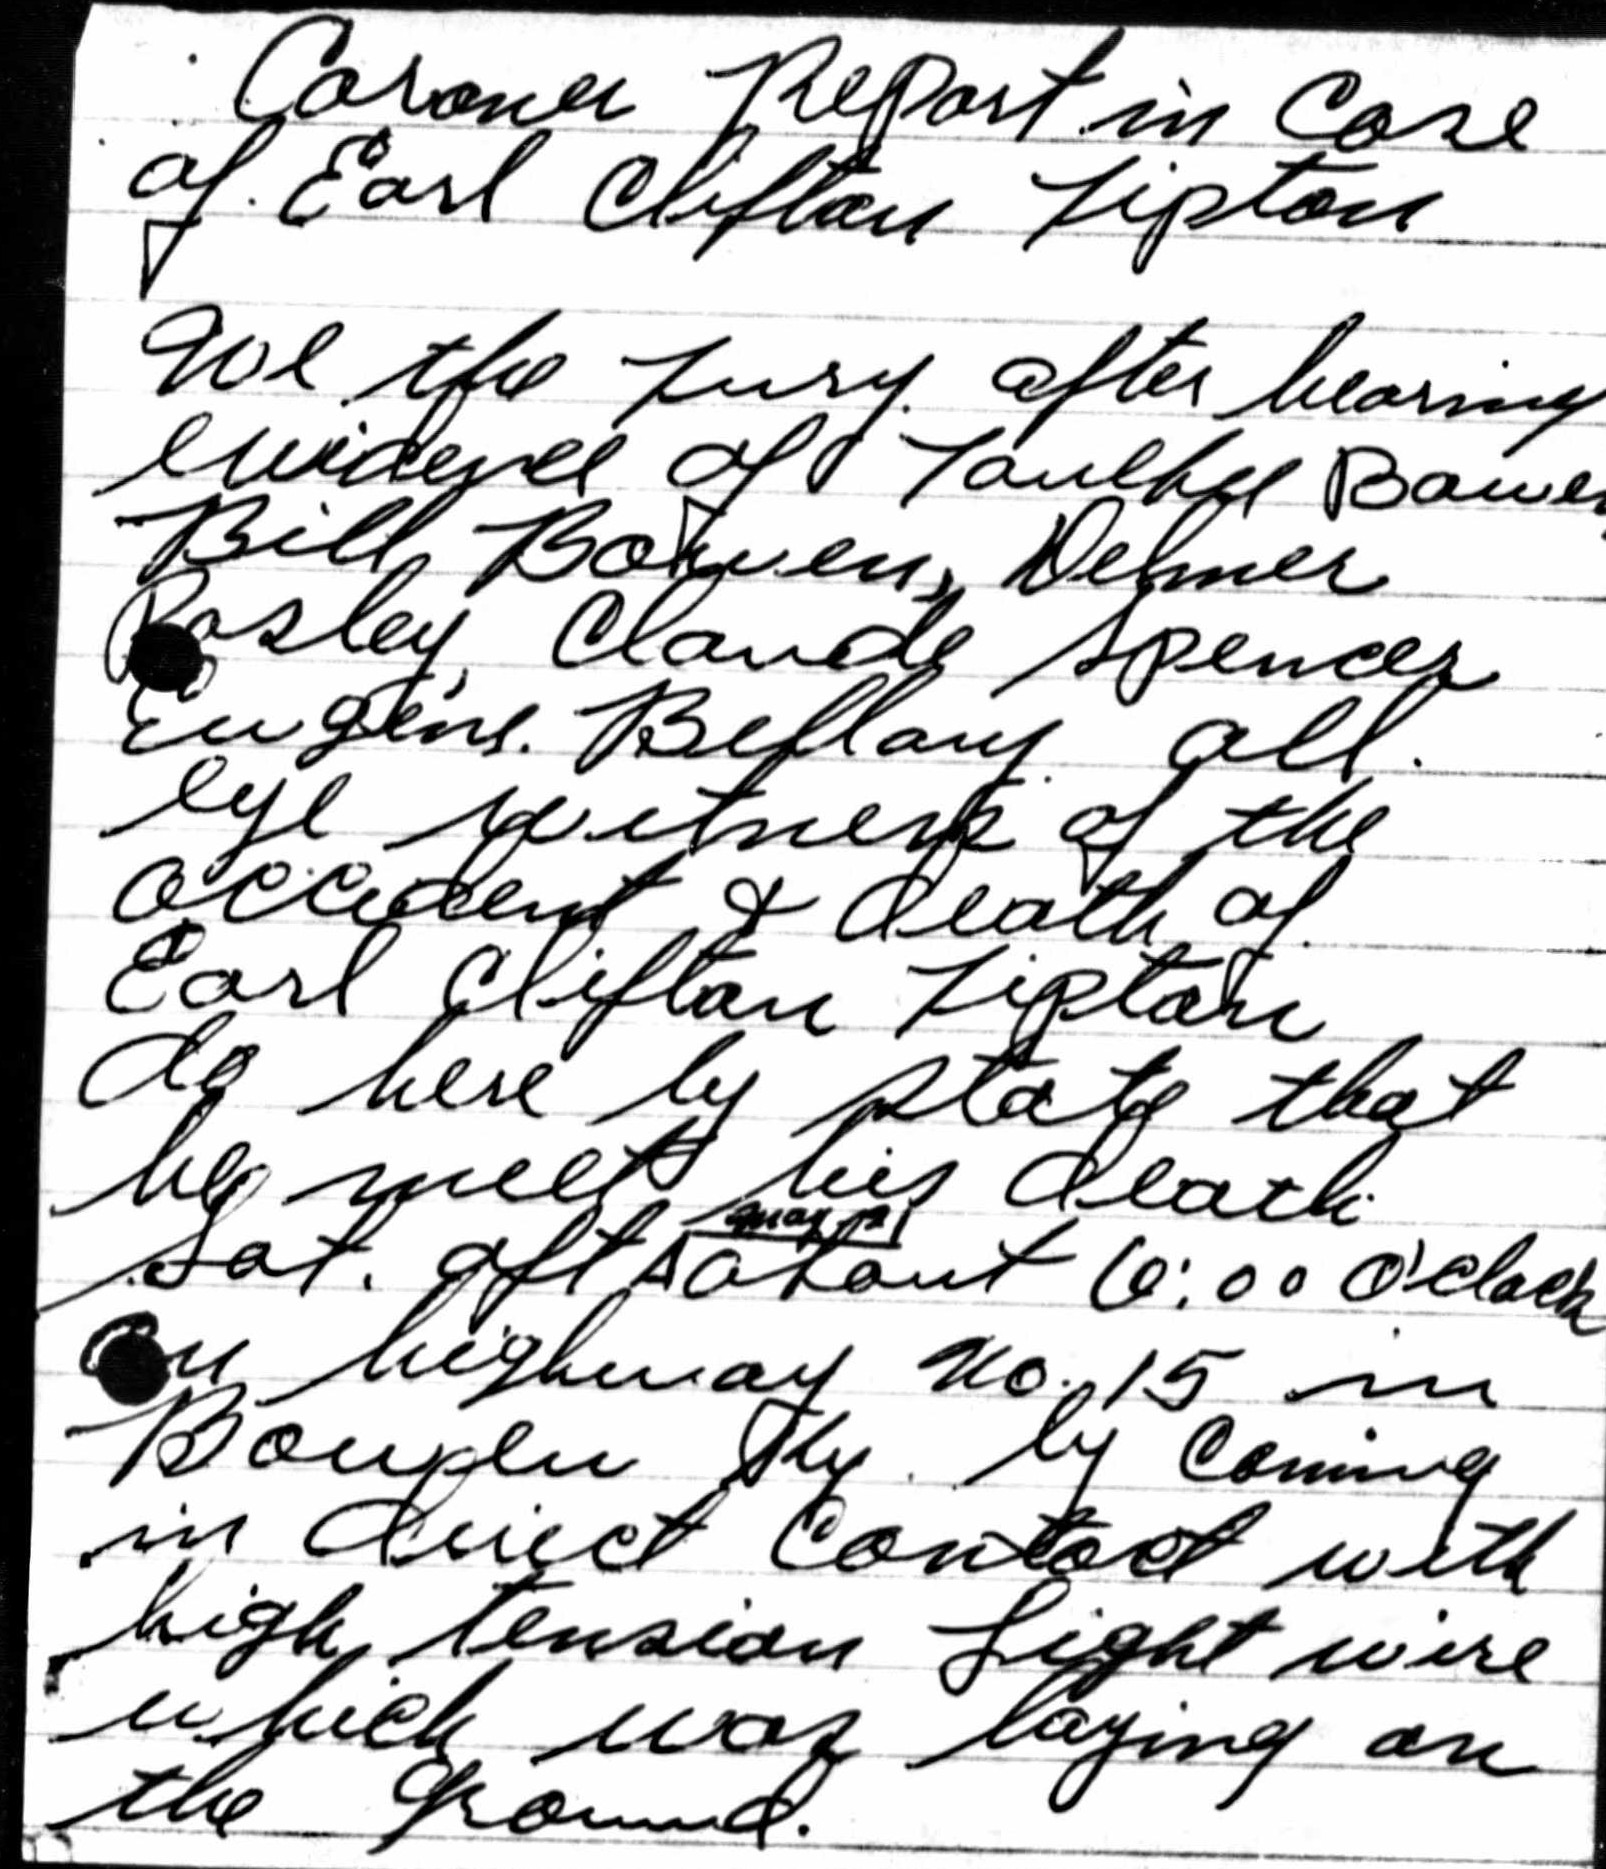 Coroner Report in Case
of Earl Clifton Tipton
We the Jury after hearing
evidence of Bowen
Bill Bowen, Delmer
Posley, Claude Spencer
Eugene. all.
eye witness of the
accident & death of
Earl Clifton Tipton
do here by state that
he meet his death
May 12
Sat. aft about 6:00 O'clock
On highway No. 15 in
Bowen Ky. by coming
in direct contact with
high tension Light wire
which was laying on
the ground.